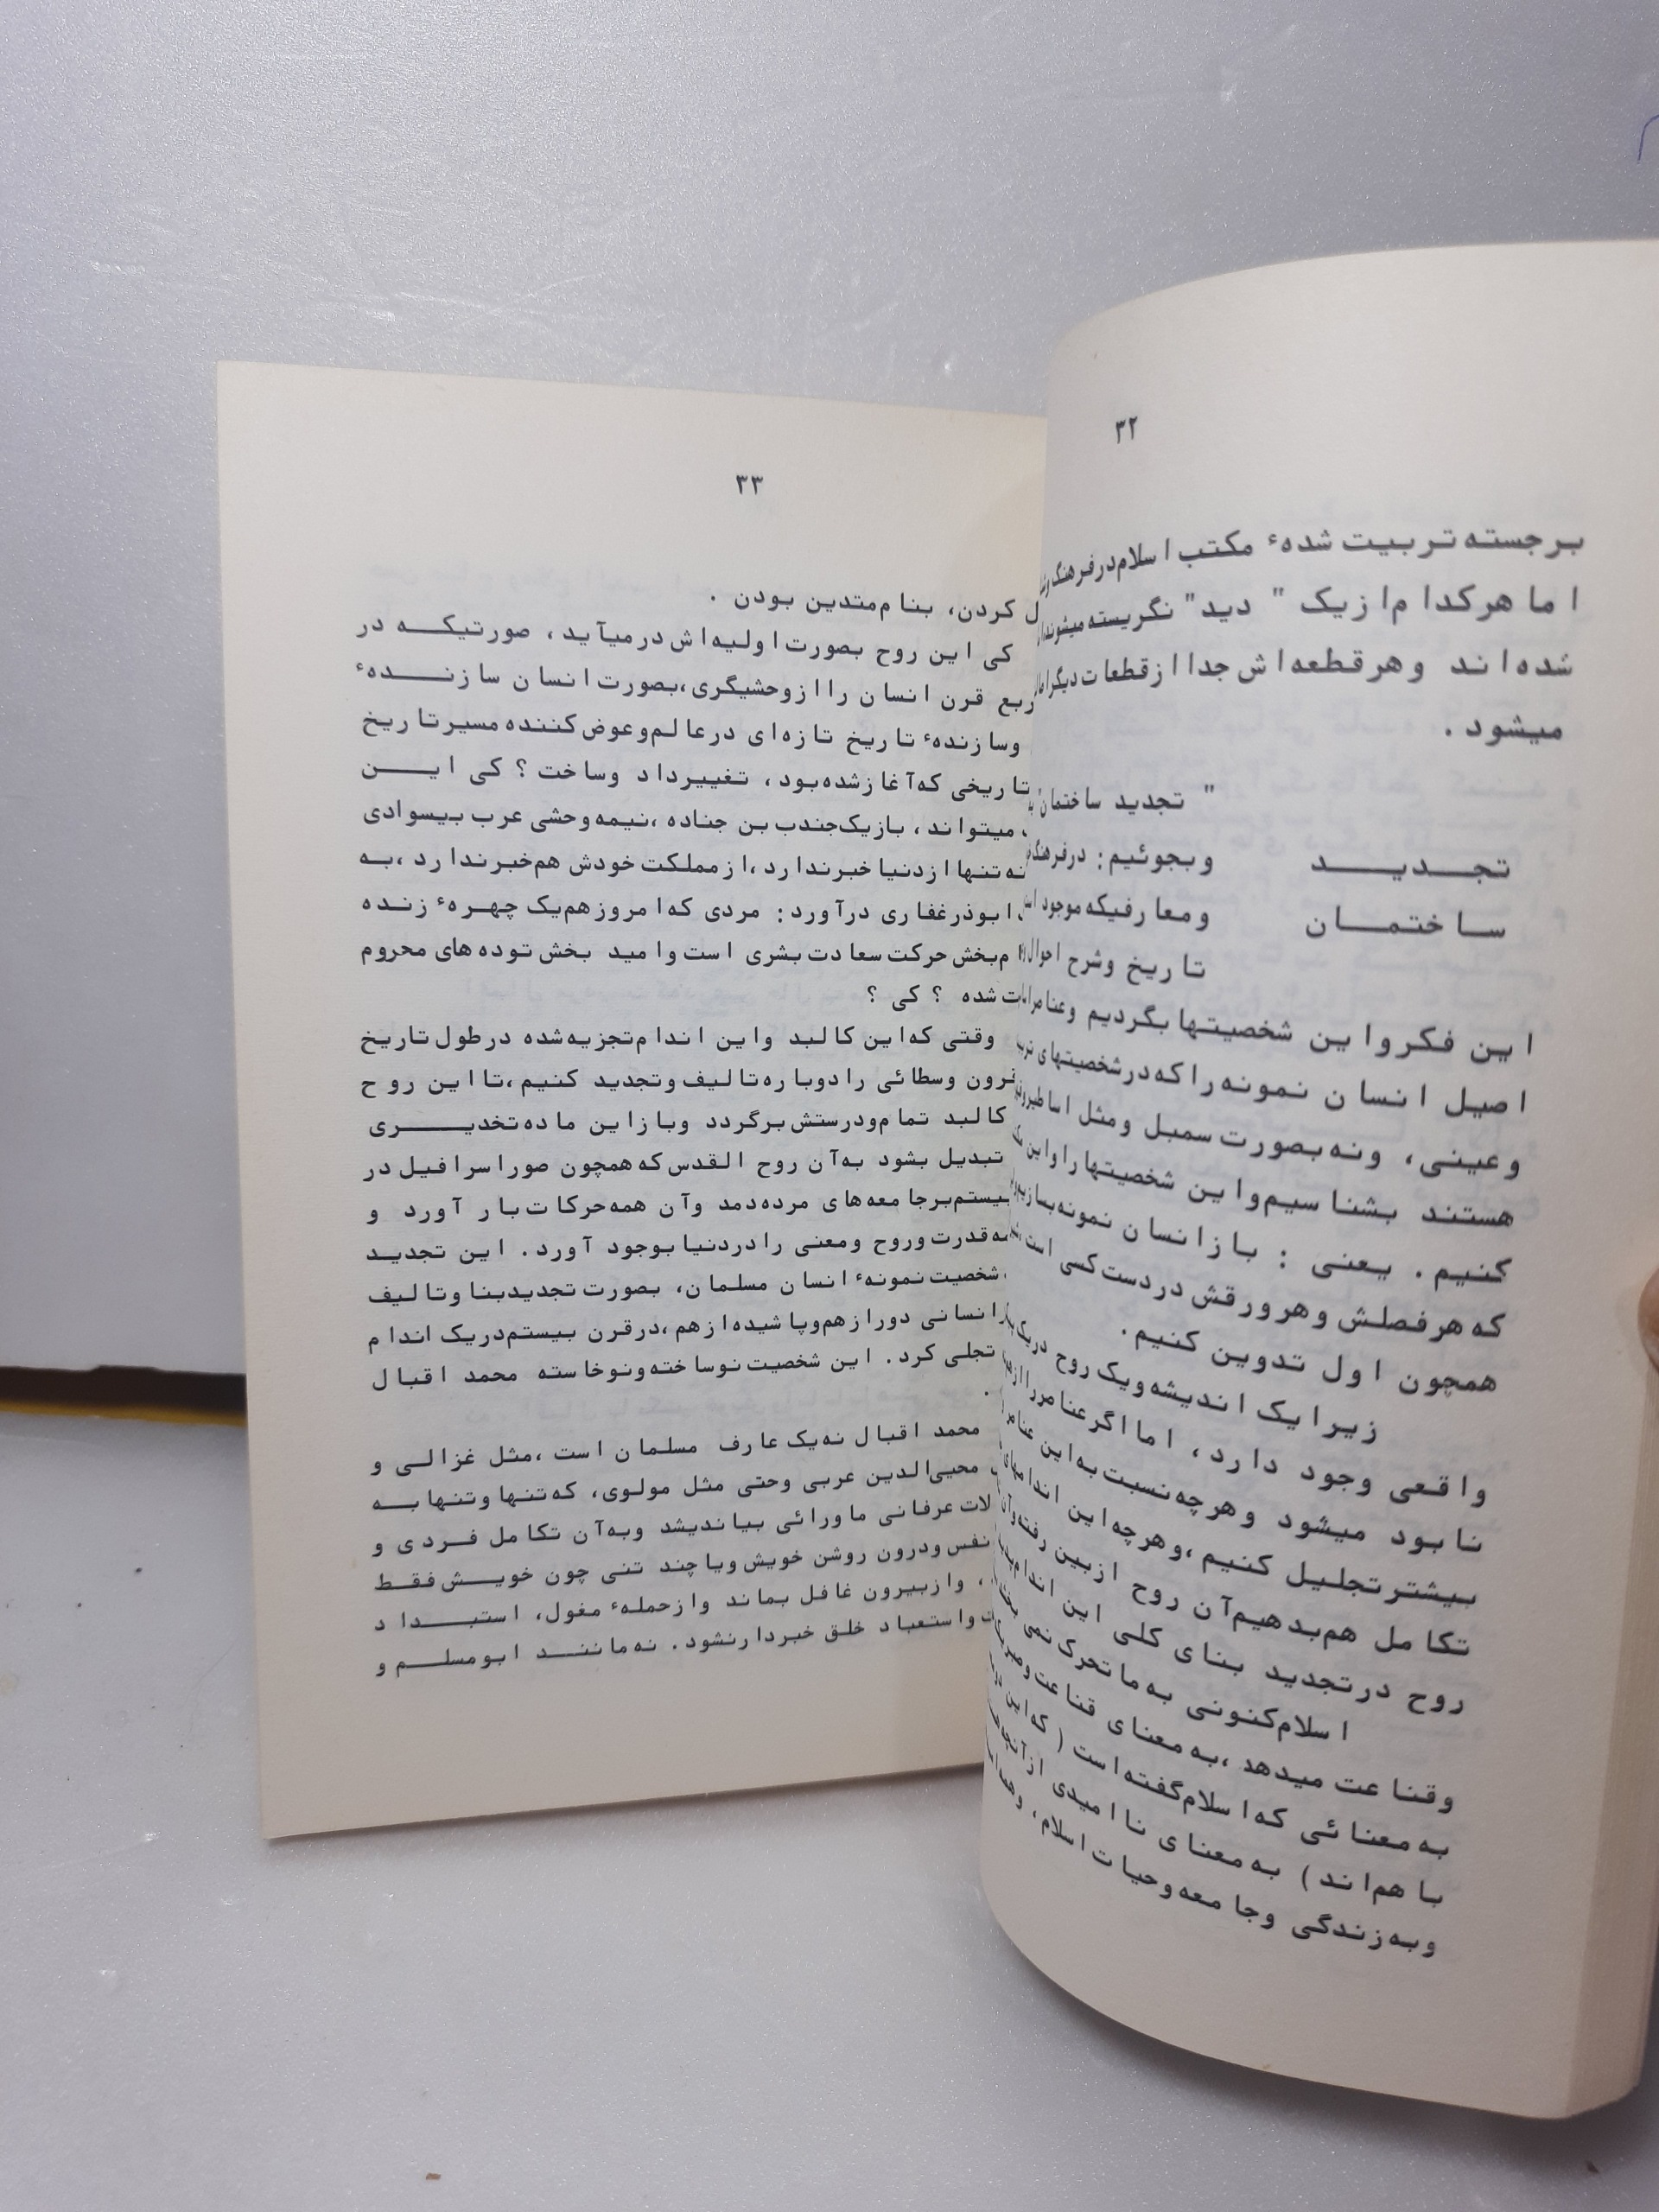 ۳۲
برجسته تربیت شدهٔ مکتب اسلام در فرهنگ
اما هرکدام از یک " دید" نگریسته میشوند
شده‌اند وهرقطعه‌اش جدا ازقطعات دیگر
میشود .
تجدید
ساختمان
" تجدید ساختمان
وبجوئیم: درفرهنگ
ومعارفیکه موجود
تاریخ وشرح احوال
این فکرواین شخصیتها بگردیم وعناصر
اصیل انسان نمونه‌راکه‌درشخصیتهای
وعینی، ونه‌بصورت سمبل ومثل اساطیر
هستند بشناسیم‌واین شخصیتهارا واین
کنیم . یعنی : بازانسان نمونه‌بسازیم
که هرفصلش وهرورقش دردست کسی است
همچون اول تدوین کنیم.
زیرایک اندیشه‌ویک روح دریک
واقعی وجود دارد، امااگرعناصررا از
نابود میشود وهرچه‌نسبت به‌این
بیشترتجلیل کنیم ،وهرچه‌این اندامهای
تکامل هم‌بدهیم‌آن روح ازبین رفته‌و
روح درتجدید بنای کلی این اندام
اسلام‌کنونی به‌ماتحرک نمی
وقناعت میدهد ،به‌معنای قناعت و
به‌معنائی که‌اسلام‌گفته‌است (که‌این
باهم‌اند) به‌معنای ناامیدی ازآنچه
وبه‌زندگی وجامعه‌وحیات اسلام،
۳۳
کردن، بنام‌متدین بودن .
کی این روح بصورت‌اولیه‌اش درمیآید، صورتیکه در
ربع قرن انسان راازوحشیگری،بصورت‌انسان سازندهٔ
وسازندهٔ تاریخ تازه‌ای درعالم‌وعوض‌کننده مسیرتاریخ
تاریخی که‌آغازشده‌بود، تغییرداد وساخت ؟ کی این
میتواند، بازیک‌جندب بن جناده ،نیمه‌وحشی عرب بیسوادی
نه تنها ازدنیا خبرندارد،ازمملکت خودش هم‌خبرندارد،به
ابوذرغفاری درآورد: مردی که‌امروزهم‌یک چهرهٔ زنده
بخش حرکت سعادت بشری است وامید بخش توده های محروم
شده ؟ کی ؟
وقتی که‌این کالبد واین اندام‌تجزیه‌شده درطول تاریخ
قرون وسطائی رادوباره‌تالیف‌وتجدید کنیم،تااین روح
کالبد تمام‌ودرستش برگردد وبازاین ماده‌تخدیری
تبدیل بشود به‌آن روح القدس که‌همچون صوراسرافیل در
بیستم‌برجامعه‌های مرده‌دمد وآن همه‌حرکات‌بار آورد و
قدرت وروح ومعنی رادردنیابوجود آورد. این تجدید
شخصیت نمونهٔ انسان مسلمان، بصورت تجدیدبنا وتالیف
انسانی دورازهم‌وپاشیده‌ازهم،درقرن بیستم‌دریک اندام
تجلی کرد. این شخصیت نوساخته‌ونوخاسته محمد اقبال
.
محمد اقبال نه‌یک عارف مسلمان است ،مثل غزالی و
محیی‌الدین عربی وحتی مثل مولوی، که‌تنها وتنها به
عرفانی ماورائی بیاندیشد وبه‌آن تکامل فردی و
نفس ودرون روشن خویش ویاچند تنی چون خویش فقط
، وازبیرون غافل بماند وازحملهٔ مغول، استبداد
واستعباد خلق خبردارنشود. نه‌مانند ابومسلم و